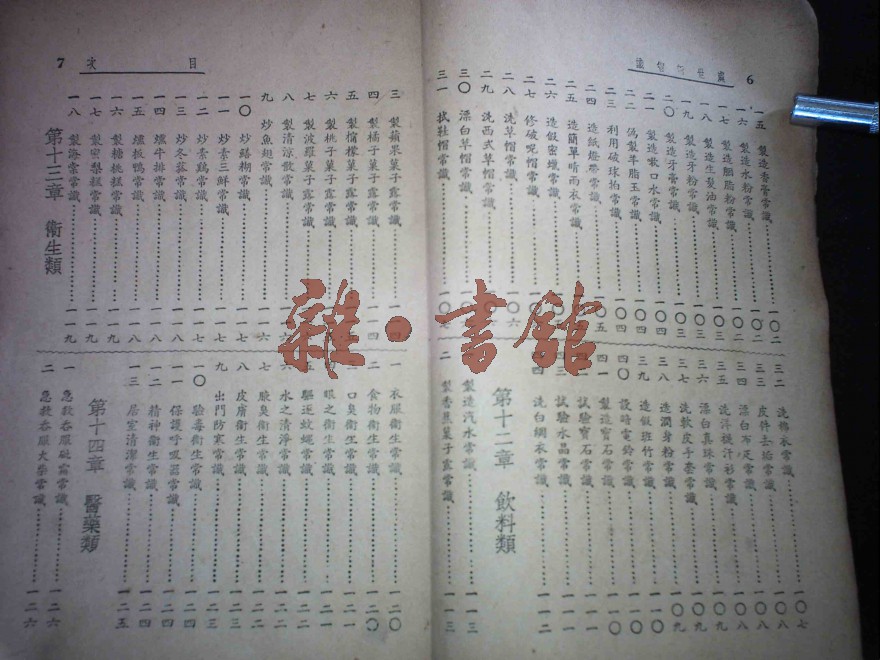 6
一五 製造香膏常識 一〇二
一六 製造水粉常識 一〇二
一七 製造胭脂粉常識 一〇二
一八 製造生髮油常識 一〇三
一九 製造牙粉常識 一〇三
二〇 製造牙膏常識 一〇三
二一 製造嗽口水常識 一〇三
二二 偽製羊脂玉常識 一〇四
二三 利用破球拍常識 一〇四
二四 造紙燈帶常識 一〇五
二五 造簡單晴雨衣常識
二六 造假密蠟常識
二七 修破呢帽常識
二八 洗草帽常識 一〇六
二九 洗西式草帽常識
三〇 漂白草帽常識
三一 拭鞋帽常識 一〇七
三二 洗綿衣常識 一〇七
三三 皮件去垢常識 一〇八
三四 漂白布疋常識 一〇八
三五 汗衫常識 一〇八
三六 漂白真珠常識 一〇九
三七 洗軟皮手套常識 一〇九
三八 造潤身粉常識 一〇九
三九 造假斑竹常識 一一〇
四〇 設暗電鈴常識 一一〇
四一 製造寶石常識 一一〇
試驗寶石常識 一一一
四三 試驗水晶常識 一一一
四四 洗白綢衣常識 一一二
第十二章 飲料類
製造汽水常識 一一三
二 製香蕉菓子露常識 一一三
目次 7
三 製蘋果菓子露常識 一一四
四 製橘子菓子露常識 一一四
五 製檸檬菓子露常識
六 製桃子菓子露常識
七 製波羅菓子露常識
八 製清涼散常識
九 炒魚翅常識 一一六
一〇 炒鱔糊常識 一一七
一一 炒素三鮮常識 一一七
一二 炒素鷄常識 一一七
一三 炒冬菇常識 一一八
一四 燻牛排常識 一一八
一五 燻板鴨常識 一一八
一六 製糖桃糕常識 一一九
一七 製密梨糕常識 一一九
一八 製海常常識 一一九
第十三章 衛生類
一 衣服衛生常識 一二〇
二 食物衛生常識 一二〇
口臭衛生常識 一二一
眼之衛生常識
驅逐蚊蠅常識
六 水之清淨常識 一二二
七 腋臭衛生常識 一二二
八 皮膚衛生常識 一二三
九 出門防寒常識 一二三
一〇 驗毒衛生常識 一二四
一一 保護呼吸器常識 一二四
一二 精神衛生常識 一二四
一三 居室清潔常識 一二五
第十四章 醫藥類
一 急救吞服砒霜常識 一二六
二 急救吞服火柴常識 一二六
雜·書館